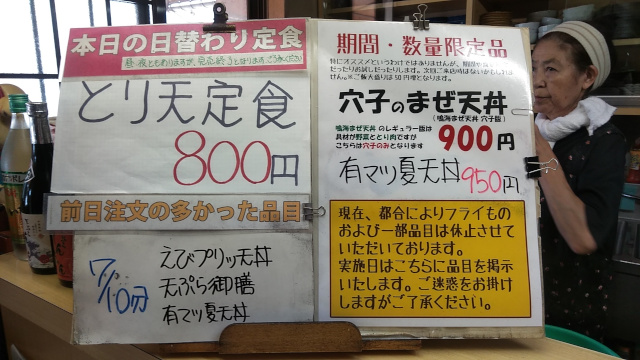 本日の日替わり定食
昼・夜ともありますが、完売終了となります。ご了承ください
とり天定食
800円
前日注文の多かった品目
7/10分
えびプリッ天丼
天ぷら御膳
有マツ夏天丼
期間・数量限定品
特にオススメというわけではありませんが、
穴子のまぜ天丼
(鳴海まぜ天丼 穴子版)
鳴海まぜ天丼 のレギュラー版は
具材が野菜ととり肉ですが
こちらは穴子のみとなります
900円
有マツ夏天丼 950円
現在、都合によりフライもの
および一部品目は休止させて
いただいております。
実施日はこちらに品目を掲示
いたします。ご迷惑をお掛け
しますがご了承ください。